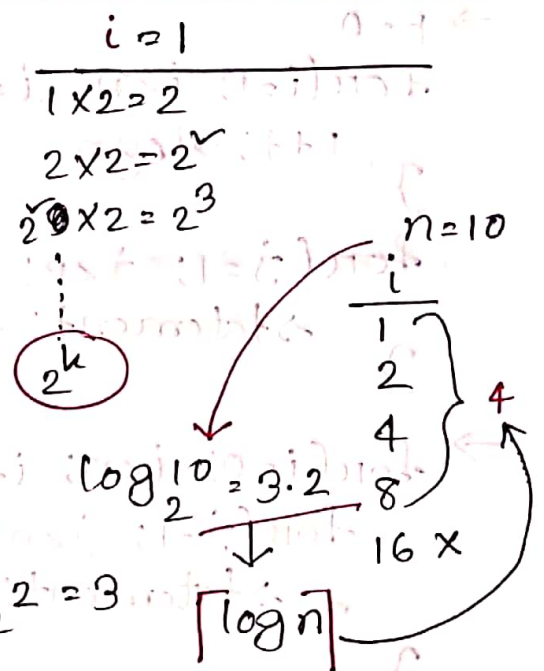 i = 1
1 × 2 = 2
2 × 2 = 2²
2² × 2 = 2³
2ᵏ
n = 10
i
1
2
4
8
16 ×
4
log₂10 = 3.2
2 = 3
⌈log n⌉